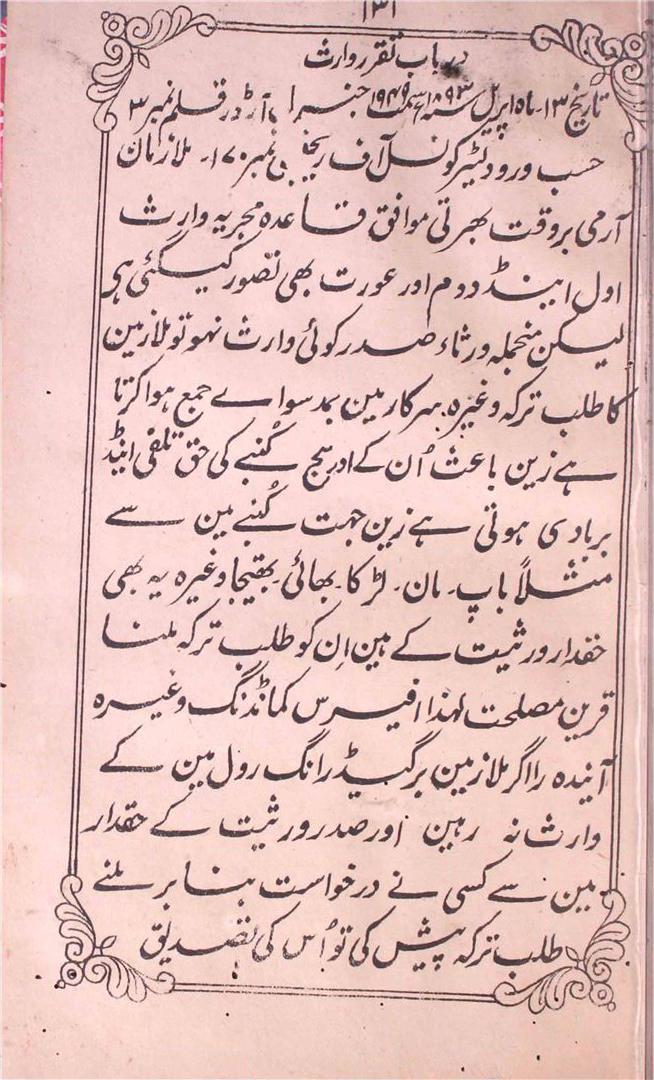 ۱۳۱
در باب تقرر وارث
تاریخ ۱۳۔ ماہ اپریل سنہ ۱۸۹۳ء سمت ۱۹۴۹ جنرل آرڈر قلم نمبر ۳
حسب ورود لیٹر کونسل آف ریجنسی نمبر ۱۷۰۔ ملازمان
آرمی بروقت بھرتی موافق قاعدہ مجریہ وارث
اول اینڈ دوم اور عورت بھی تصور کیگئی ہی
لیکن منجملہ ورثاء صدر کوئی وارث نہو تو ملازمین
کا طلب ترکہ وغیرہ سرکار مین بمد سواے جمع ہوا کرتا
ہے زین باعث اُن کے اور ہیج کُنبے کی حق تلفی اینڈ
بربادی ہوتی ہے زین جہت کُنبے مین سے
مثلاً باپ۔ مان۔ لڑکا۔ بھائی۔ بھتیجا وغیرہ یہ بھی
حقدار ورثیت کے ہین اِن کو طلب ترکہ ملنا
قرین مصلحت لہذا افیسرس کمانڈنگ وغیرہ
آیندہ را اگر ملازمین برگیڈ رانگ رول مین کے
وارث نہ رہین اور صدر ورثیت کے حقدار
مین سے کسی نے درخواست بنا بر ملنے
طلب ترکہ پیش کی تو اُس کی تصدیق